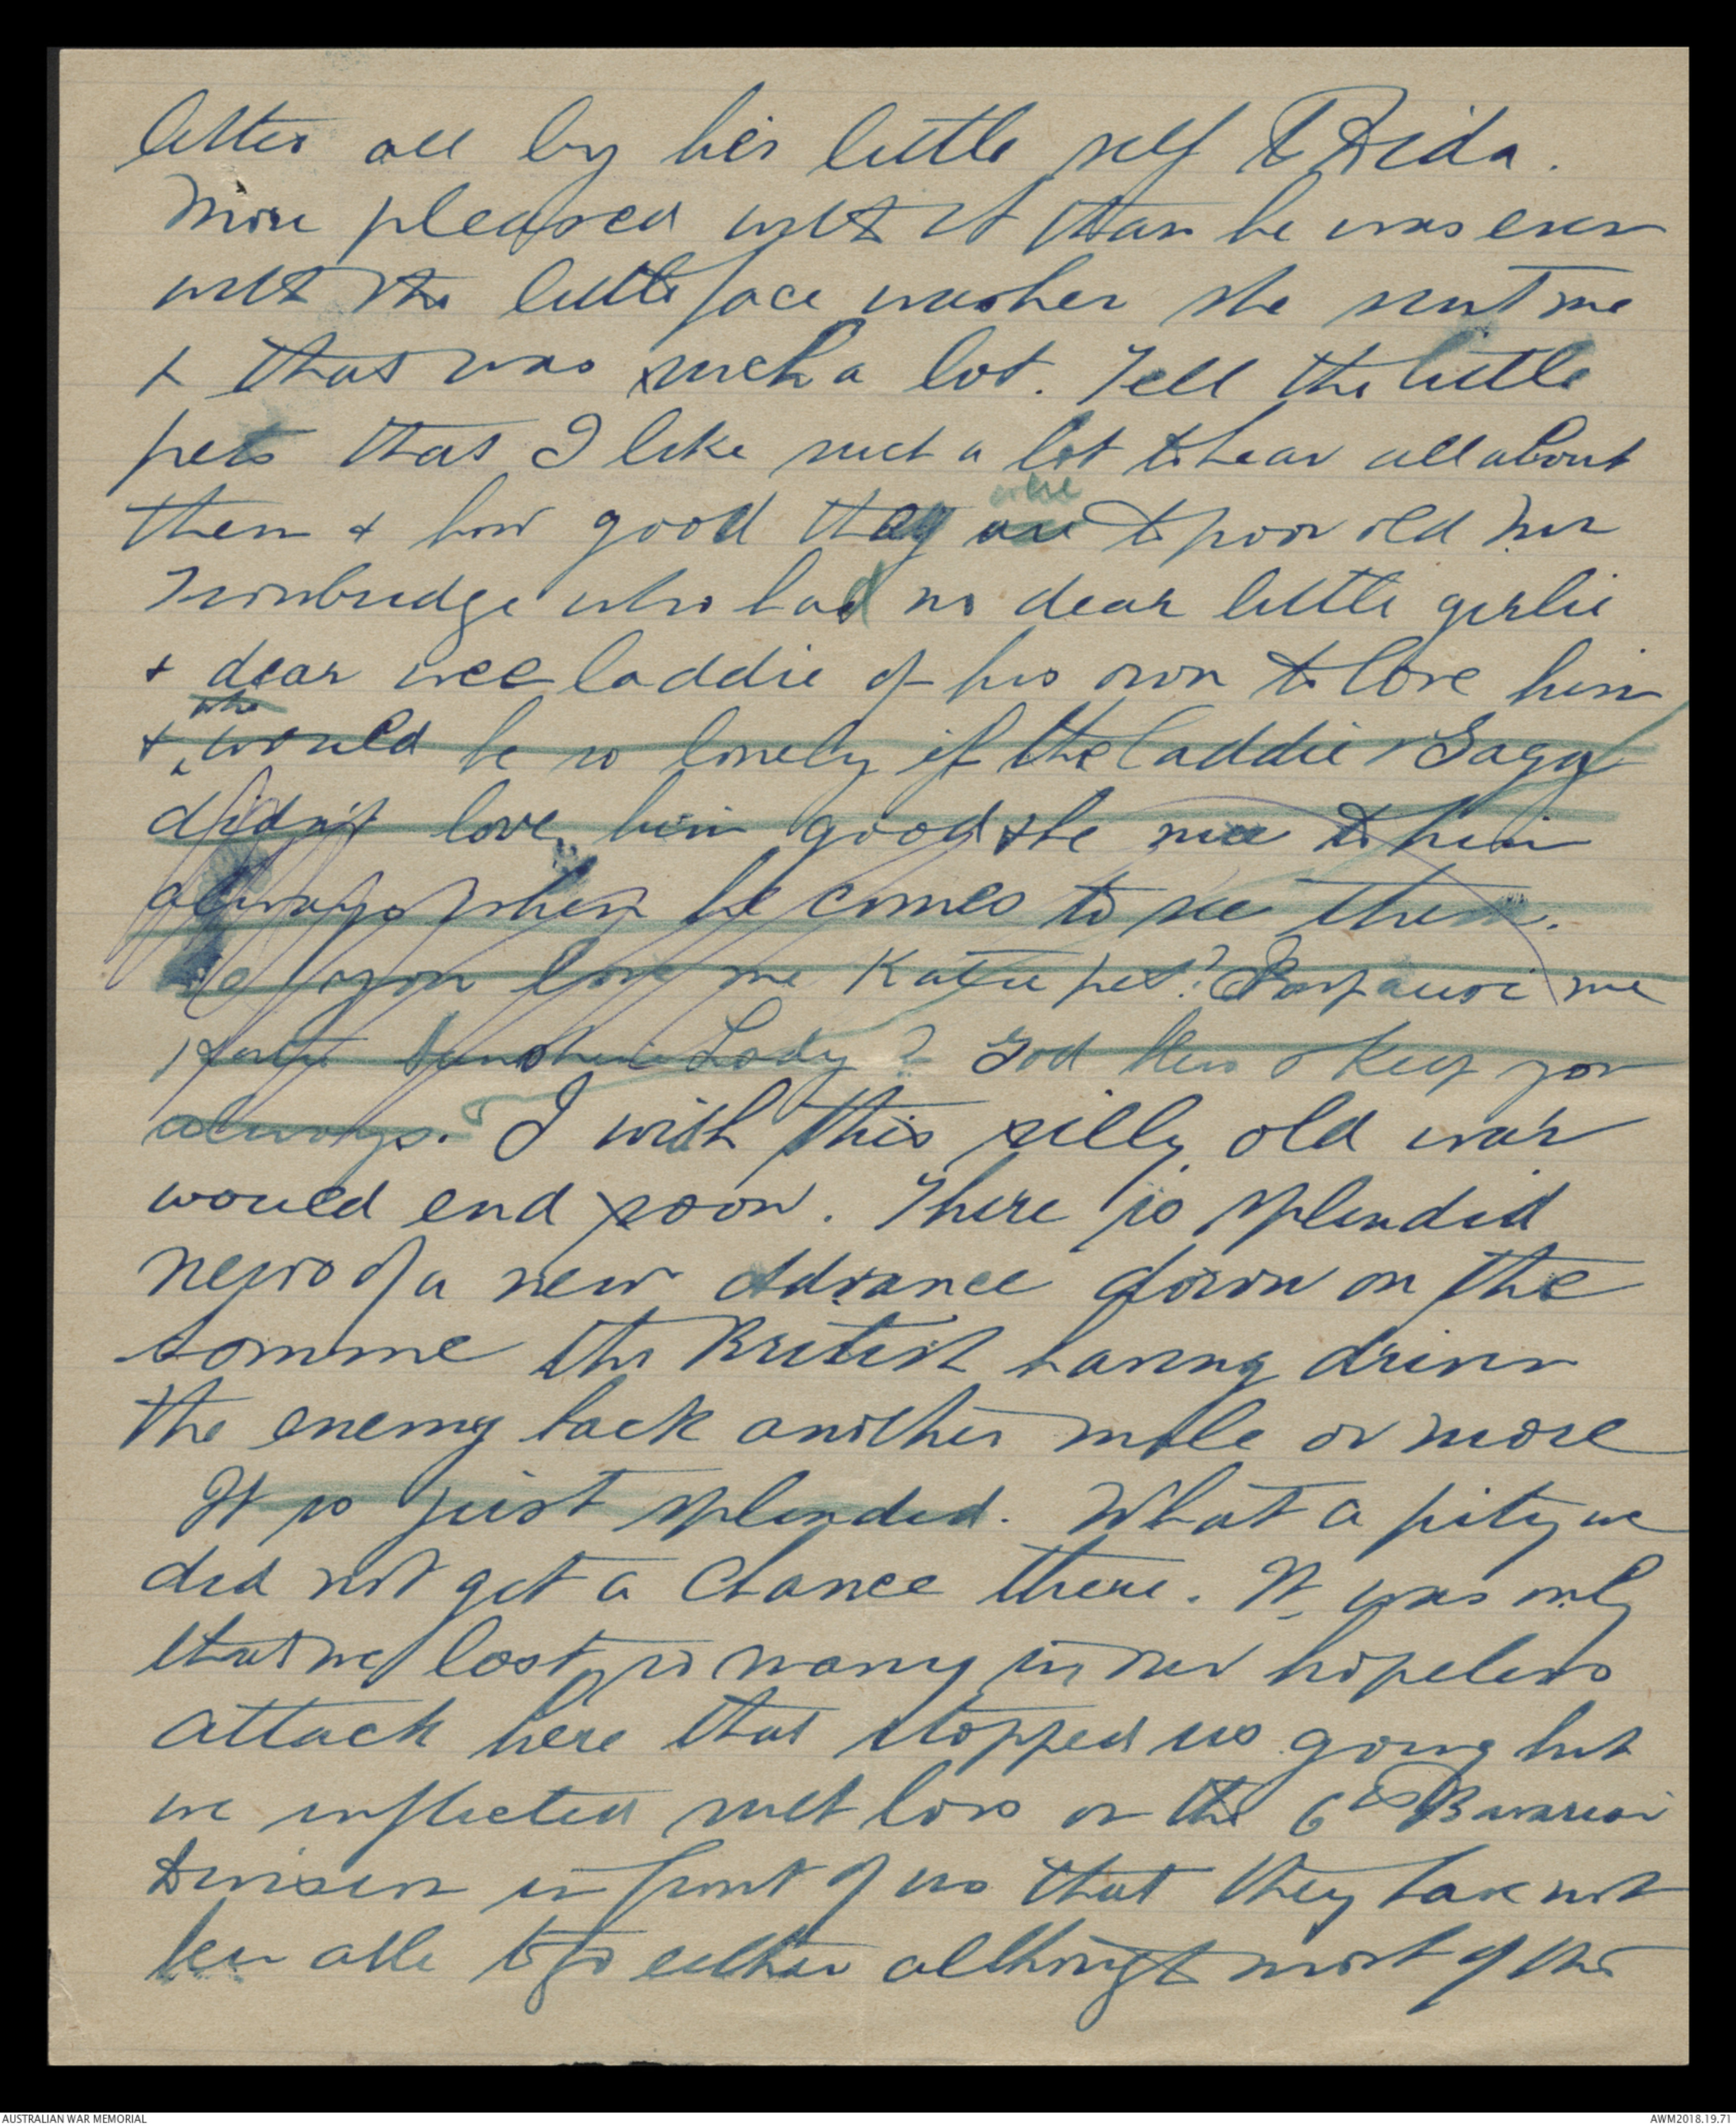 letter all by her little self to Dida.
More pleased with it than he was even
with the little face washer she sent me
& that was such a lot. Tell the little
pets that I like such a lot to hear all about
them & how good they are were to poor old Mr
Trowbridge who had no dear little girlie
& dear wee laddie of his own to love him
& who would be so lonely if the laddie & Gaga
didn't love him good & be nice to him
always when he comes to see them.
Do you love me Katie pet? me
Sunshine Lady? God bless & keep you
always. I wish this silly old war
would end soon. There is splendid
news of a new advance down on the
Somme the British having driven
the enemy back another mile or more
It is just splendid. What a pity we
did not get a chance there. It was only
that we lost so many in our hopeless
attack here that stopped us going but
we inflicted such loss on the 6th Bavarian
Division in front of us that they have not
been able to go either although most of the
AUSTRALIAN WAR MEMORIAL
AWM2018.19.71